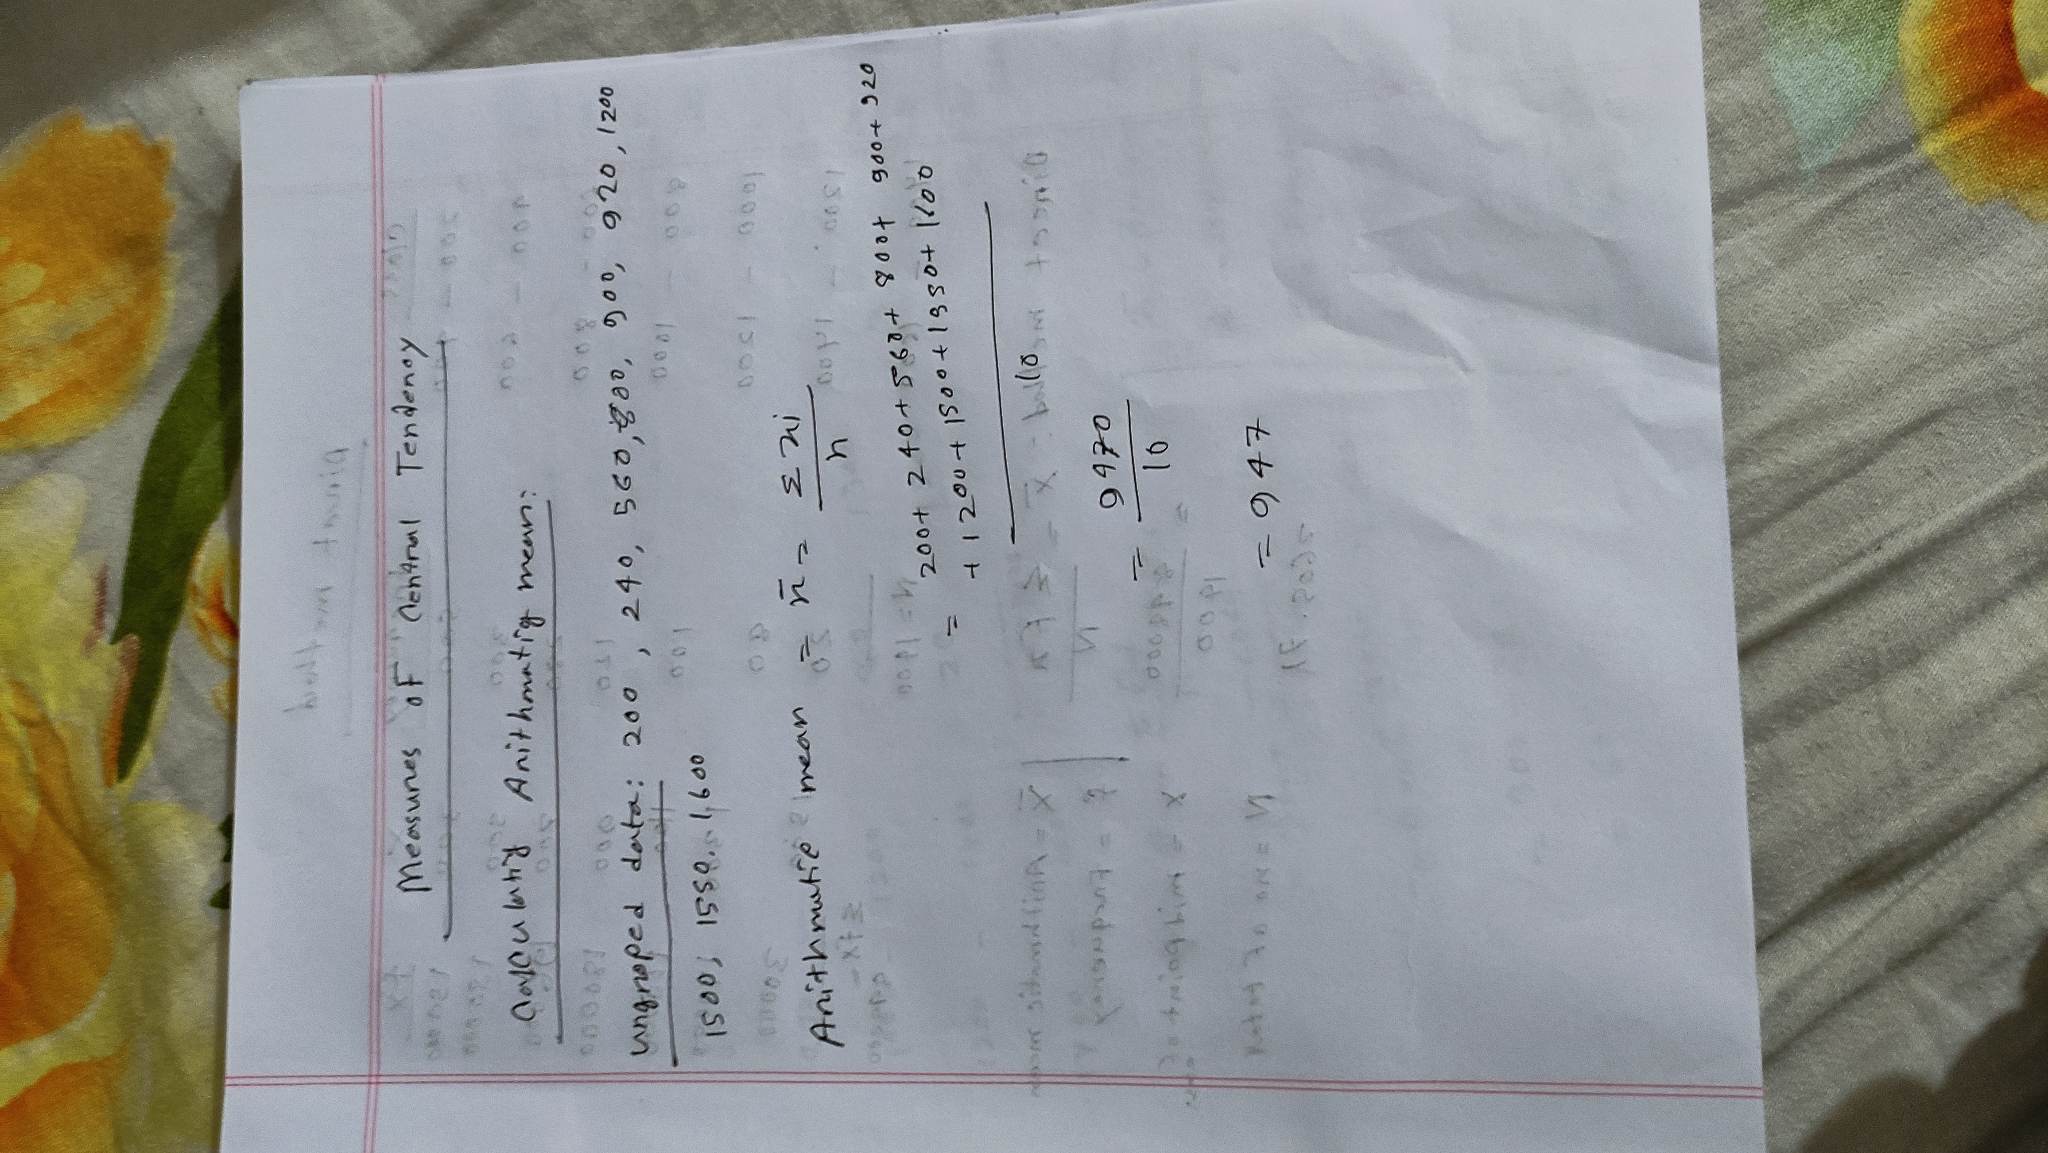 Measures of Central Tendency
Calculatig Arithmatig mean:
ungroped data: 200, 240, 560, 800, 900, 920, 1200
1500, 1550, 1600
Arithmatic mean = x̄ = Σxi / n
= 200+ 240+ 560+ 800+ 900+ 920
+ 1200+ 1500+ 1550+ 1600
10
= 9470 / 10
= 947